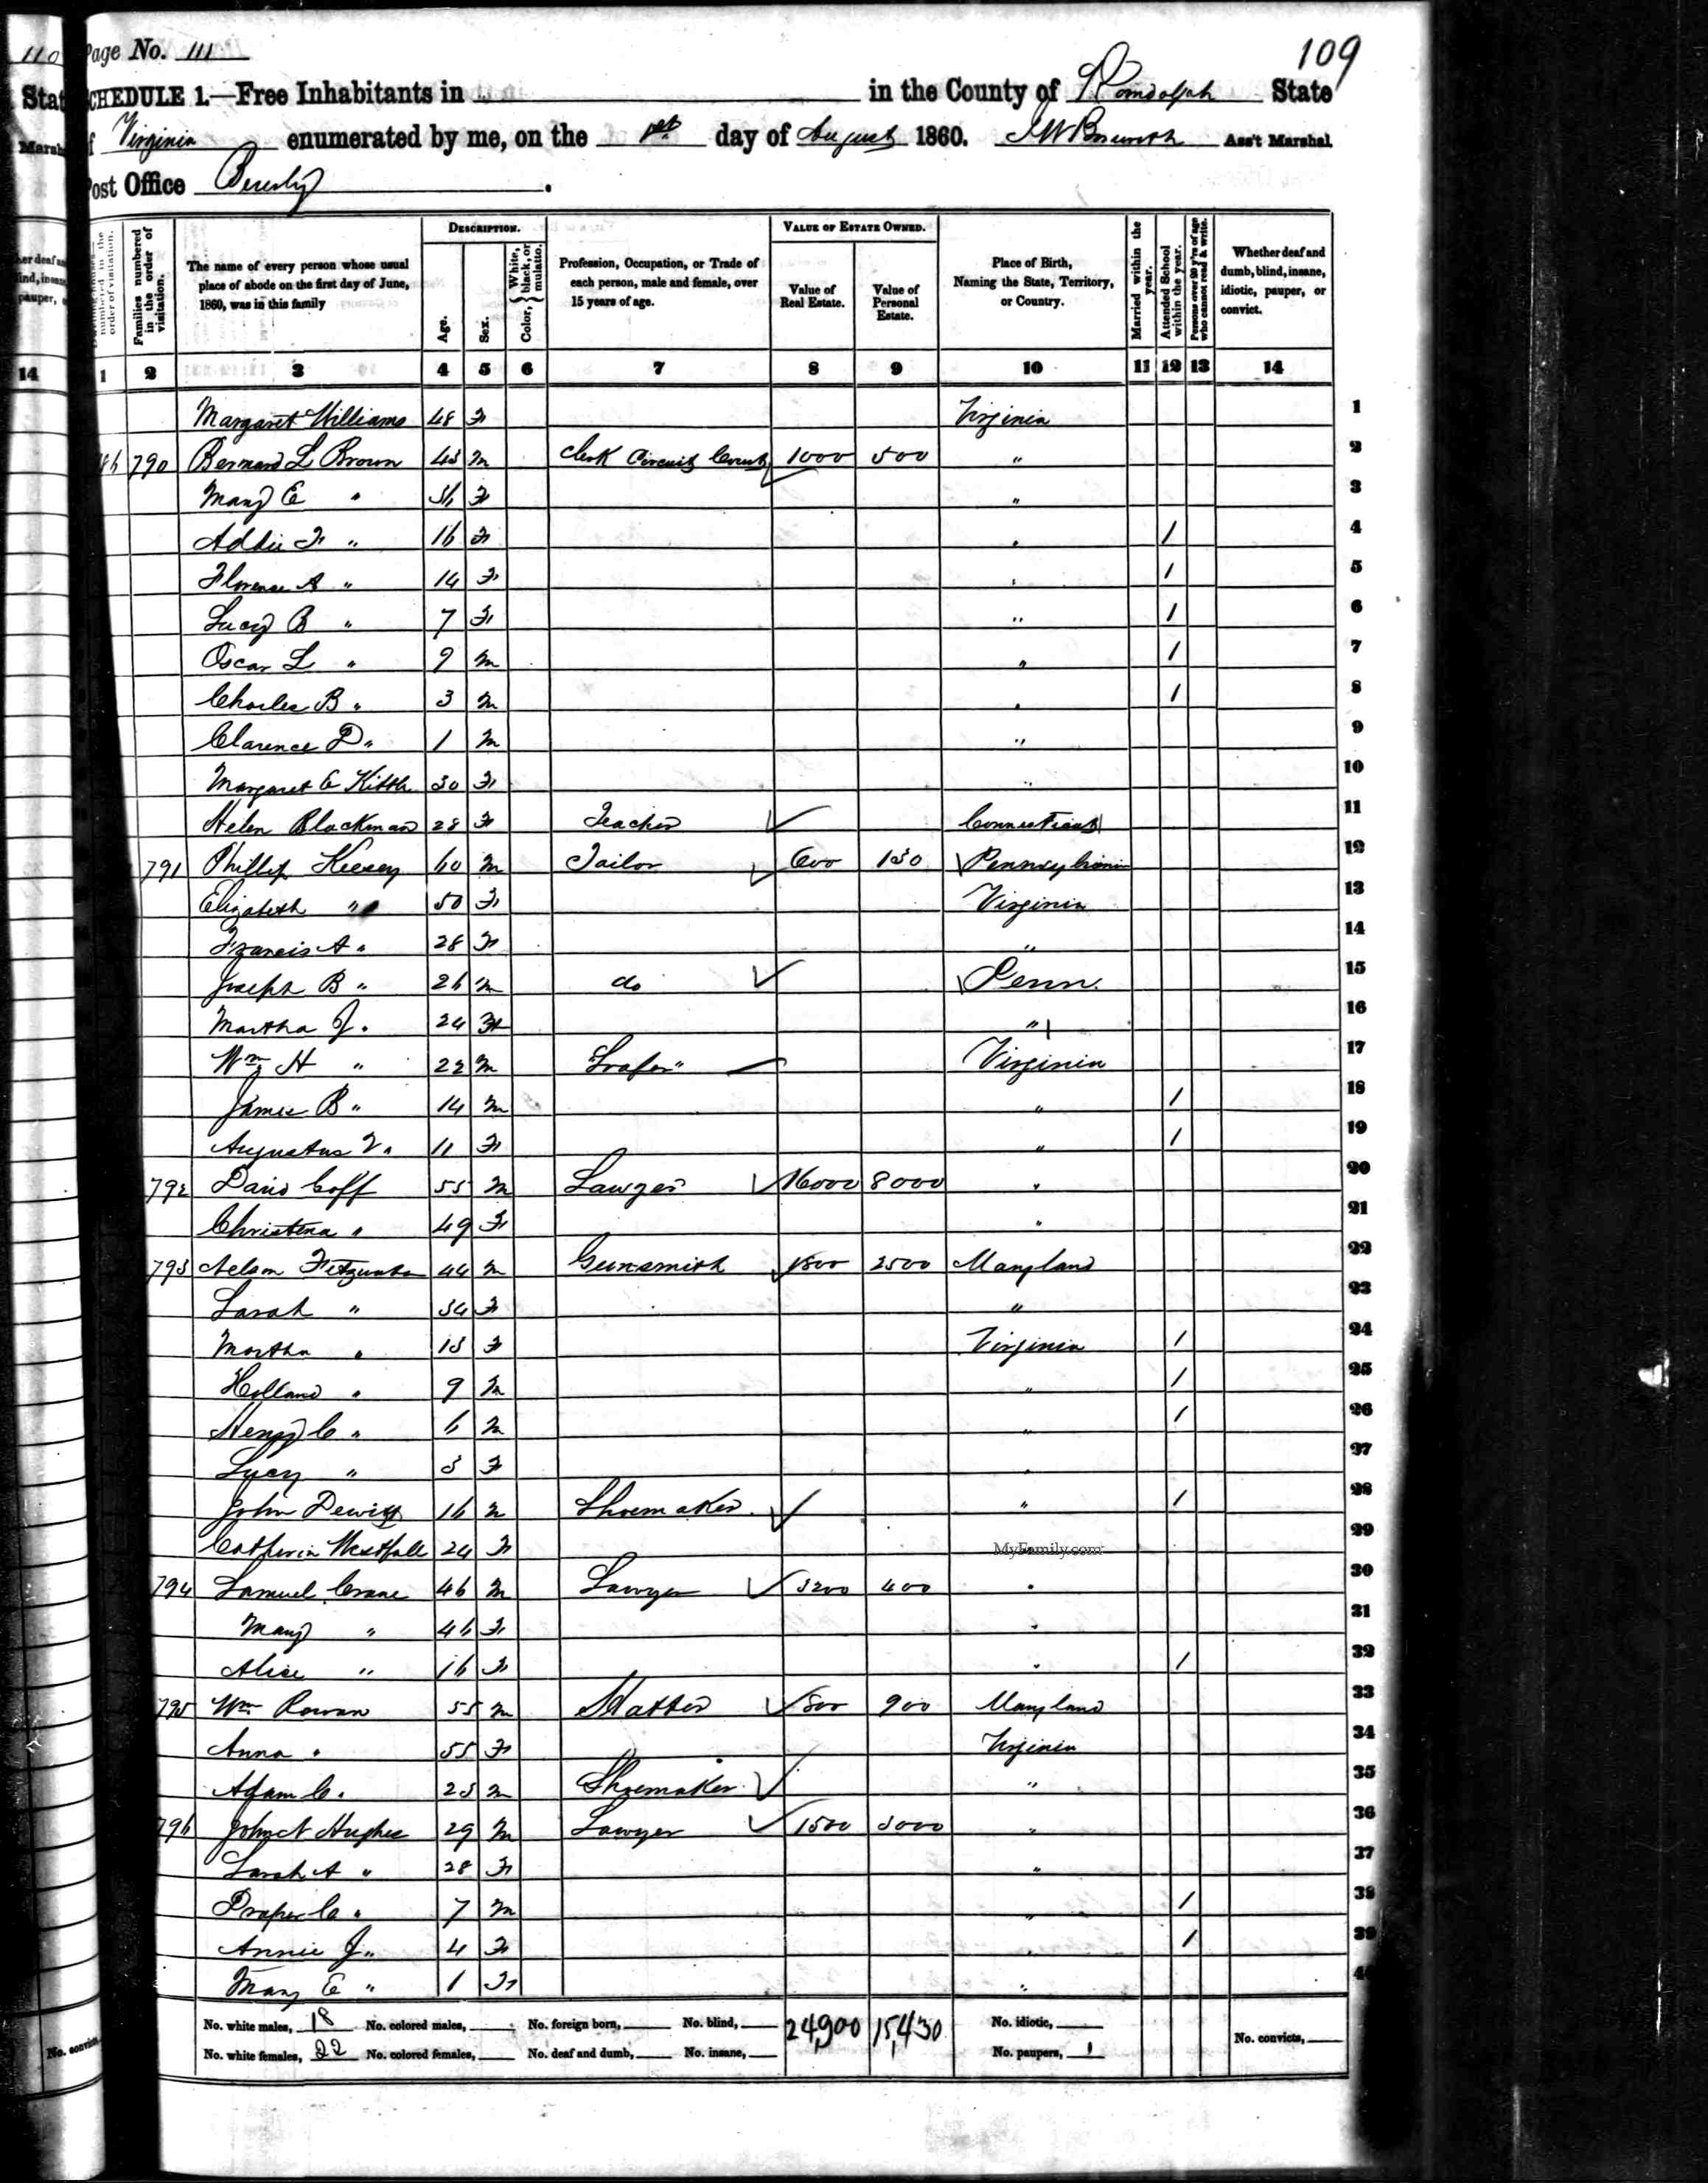 110 Page No. 111 109
Stat SCHEDULE 1.—Free Inhabitants in in the County of Randolph State
Marsh of Virginia enumerated by me, on the 1st day of August 1860. J W Bosworth Ass't Marshal.
Post Office Beverly .
DESCRIPTION. VALUE OF ESTATE OWNED.
Families numbered in the order of visitation.
The name of every person whose usual place of abode on the first day of June, 1860, was in this family
Age. Sex. Color, { White, black, or mulatto.
Profession, Occupation, or Trade of each person, male and female, over 15 years of age.
Value of Real Estate. Value of Personal Estate.
Place of Birth, Naming the State, Territory, or Country.
Married within the year. Attended School within the year. Persons over 20 y'rs of age who cannot read & write.
Whether deaf and dumb, blind, insane, idiotic, pauper, or convict.
14 1 2 3 4 5 6 7 8 9 10 11 12 13 14
Margaret Williams 48 F Virginia 1
790 Bernard L Brown 43 M Clerk Circuit Court 1000 500 " 2
Mary E " 36 F " 3
Addie F " 16 F " / 4
Florence A " 14 F " / 5
Lucy B " 7 F " / 6
Oscar L " 9 M " / 7
Charles B " 3 M " / 8
Clarence D " 1 M " 9
Margaret E Kittle 30 F " 10
Helen Blackman 28 F Teacher Connecticut 11
791 Phillip Keesey 60 M Tailor 600 130 Pennsylvania 12
Elizabeth " 50 F Virginia 13
Francis A " 28 F " 14
Joseph B " 26 M do Penn. 15
Martha J. 24 F " 16
Wm H " 22 M "Loafer" Virginia 17
James B " 14 M " / 18
Augustus V " 11 F " / 19
792 David Goff 55 M Lawyer 16000 8000 " 20
Christena " 49 F " 21
793 Nelson 44 M Gunsmith 1800 2500 Maryland 22
Sarah " 34 F " 23
Martha " 13 F Virginia / 24
Holland " 9 M " / 25
Henry C " 6 M " / 26
Lucy " 3 F " 27
John Dewitt 16 M Shoemaker " / 28
Catherin Westfall 24 F MyFamily.com 29
794 Samuel Crane 46 M Lawyer 3200 400 " 30
Mary " 46 F " 31
Alice " 16 F " / 32
795 Wm Rowan 55 M Hatter 800 900 Maryland 33
Anna " 55 F Virginia 34
Adam C. 23 M Shoemaker " 35
796 John N Hughes 29 M Lawyer 1500 3000 " 36
Sarah A " 28 F " 37
Draper C " 7 M " / 38
Annie J " 4 F " / 39
Mary E " 1 F " 40
No. white males, 18 No. colored males, No. foreign born, No. blind, 24,900 15,430 No. idiotic,
No. white females, 22 No. colored females, No. deaf and dumb, No. insane, No. paupers, 1 No. convicts,